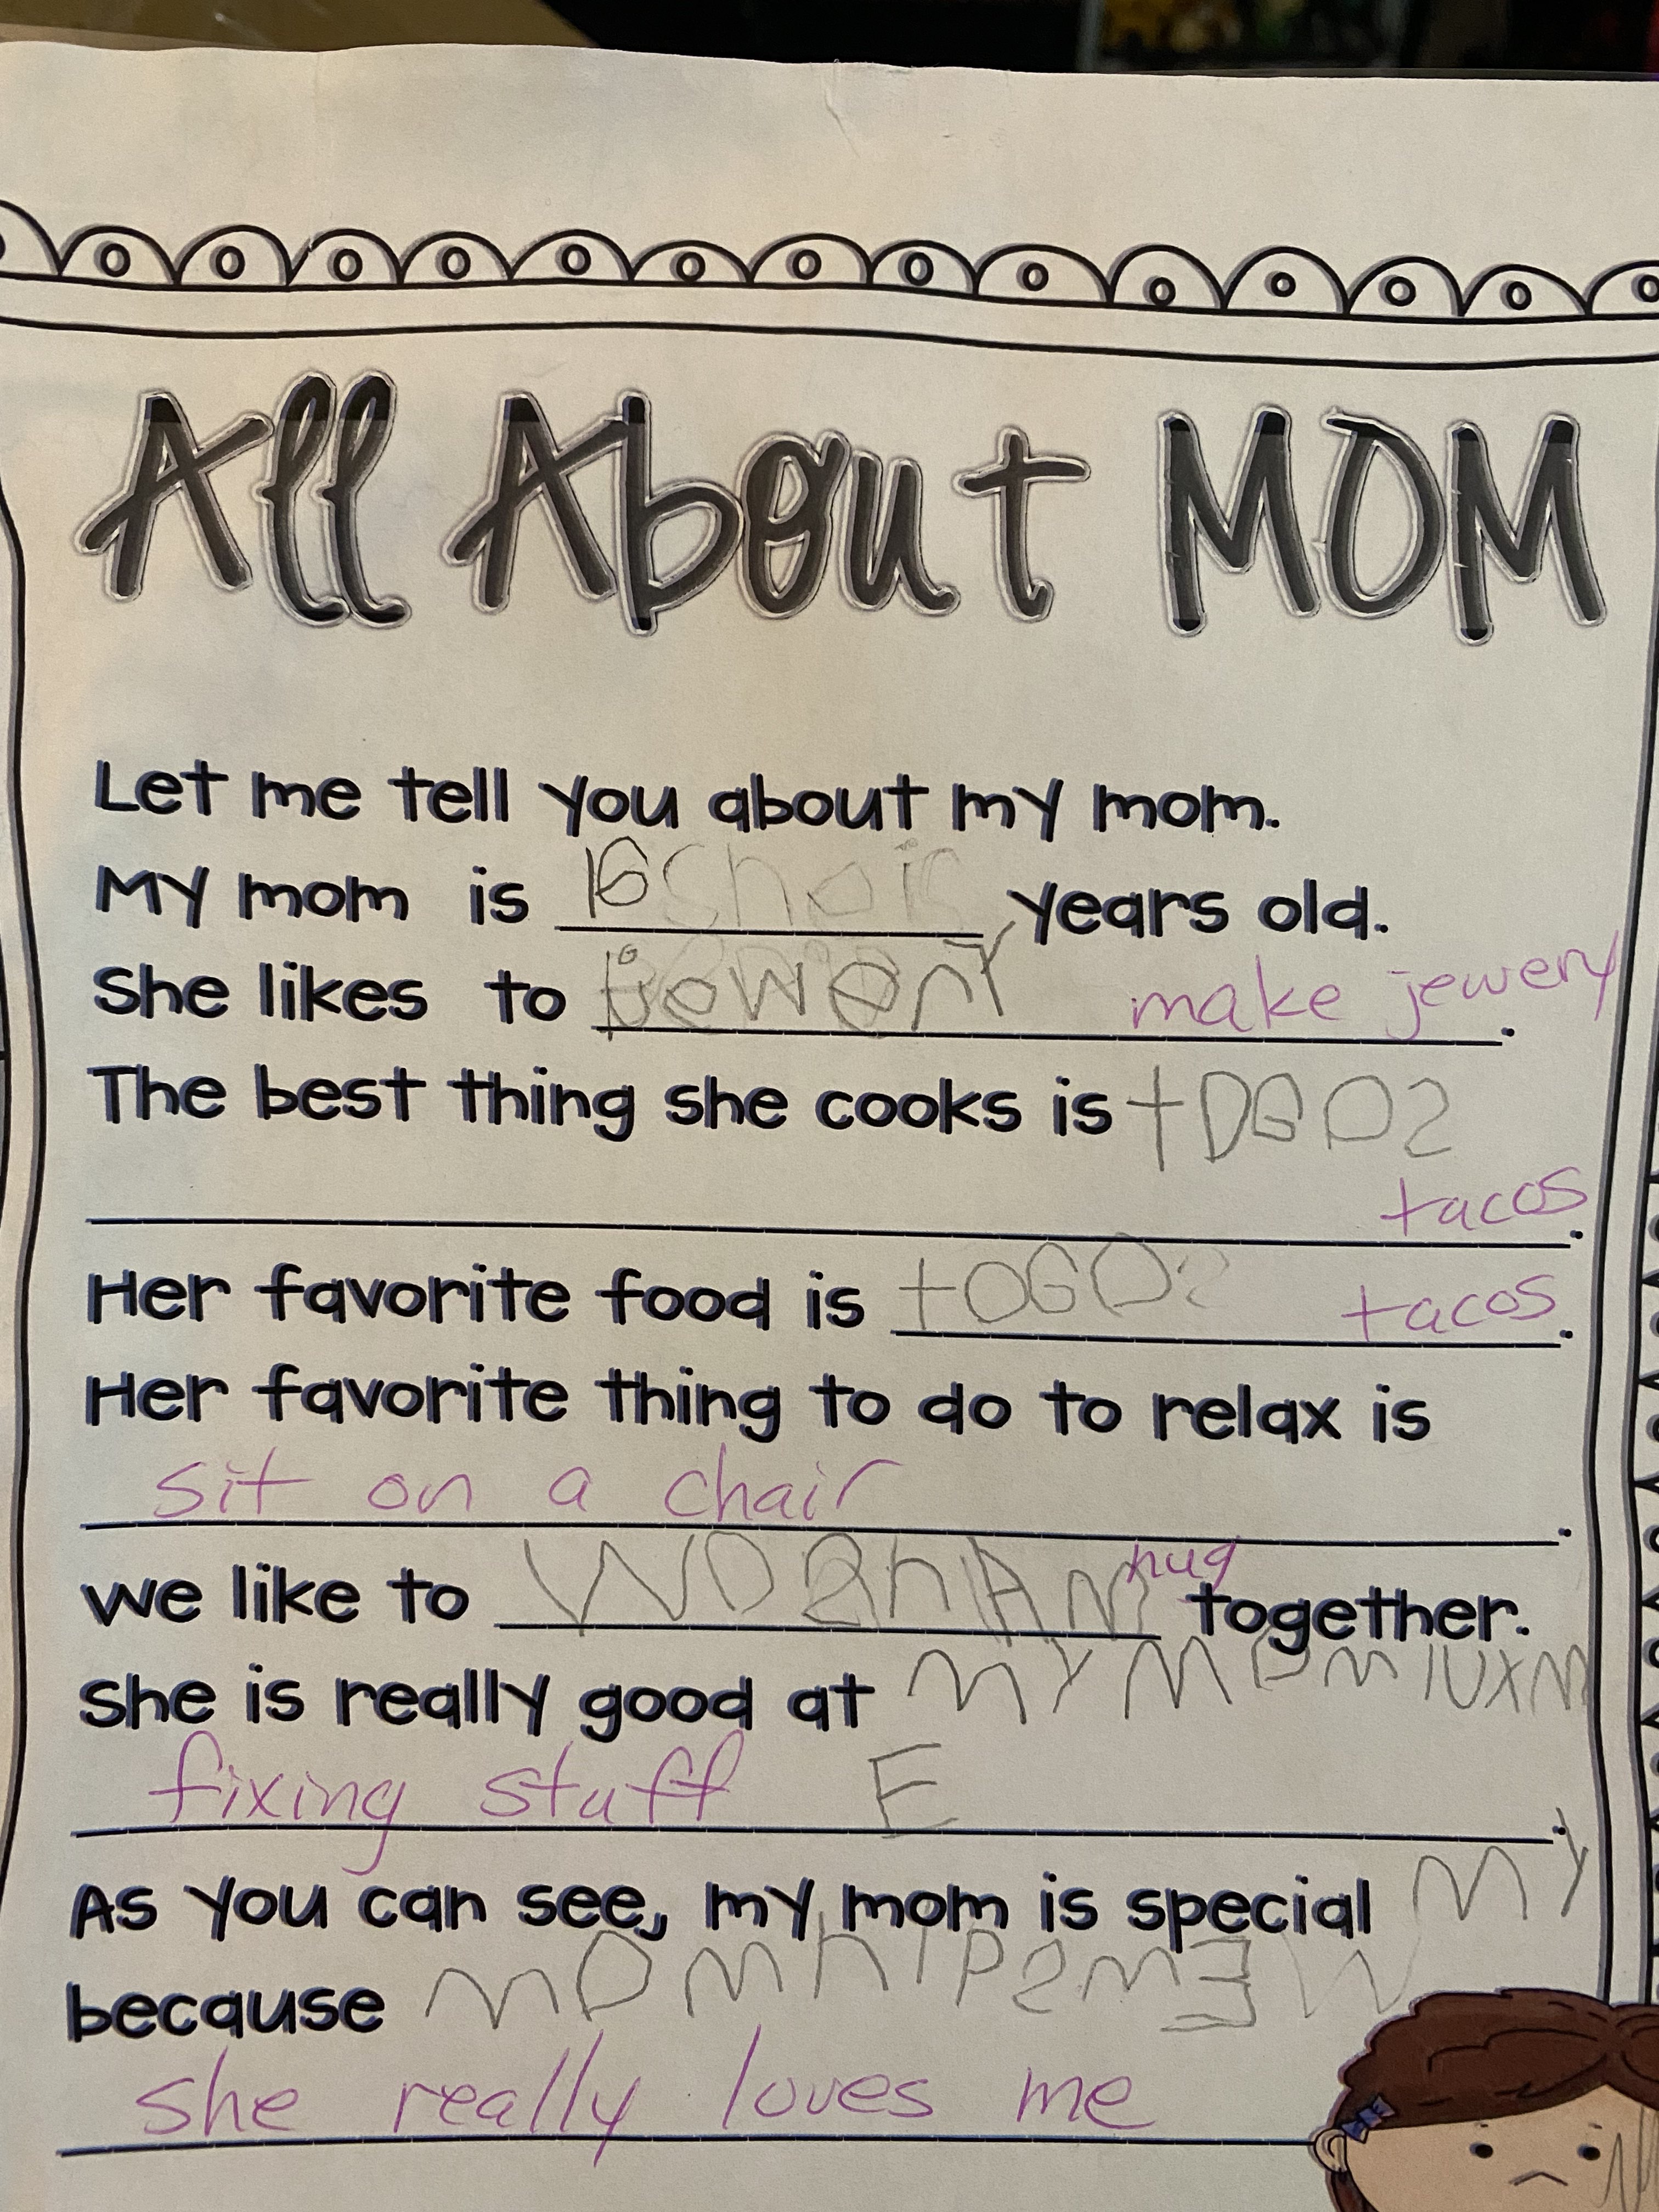 All About MOM
Let me tell you about my mom.
My mom is 16 years old.
She likes to jewery make jewery.
The best thing she cooks is tDGOS
tacos.
Her favorite food is tOGOS tacos.
Her favorite thing to do to relax is
sit on a chair.
we like to hug together.
She is really good at MYMOM IUXM
fixing stuff E.
As you can see, my mom is special MY
because MOM hIPSMEW
she really loves me